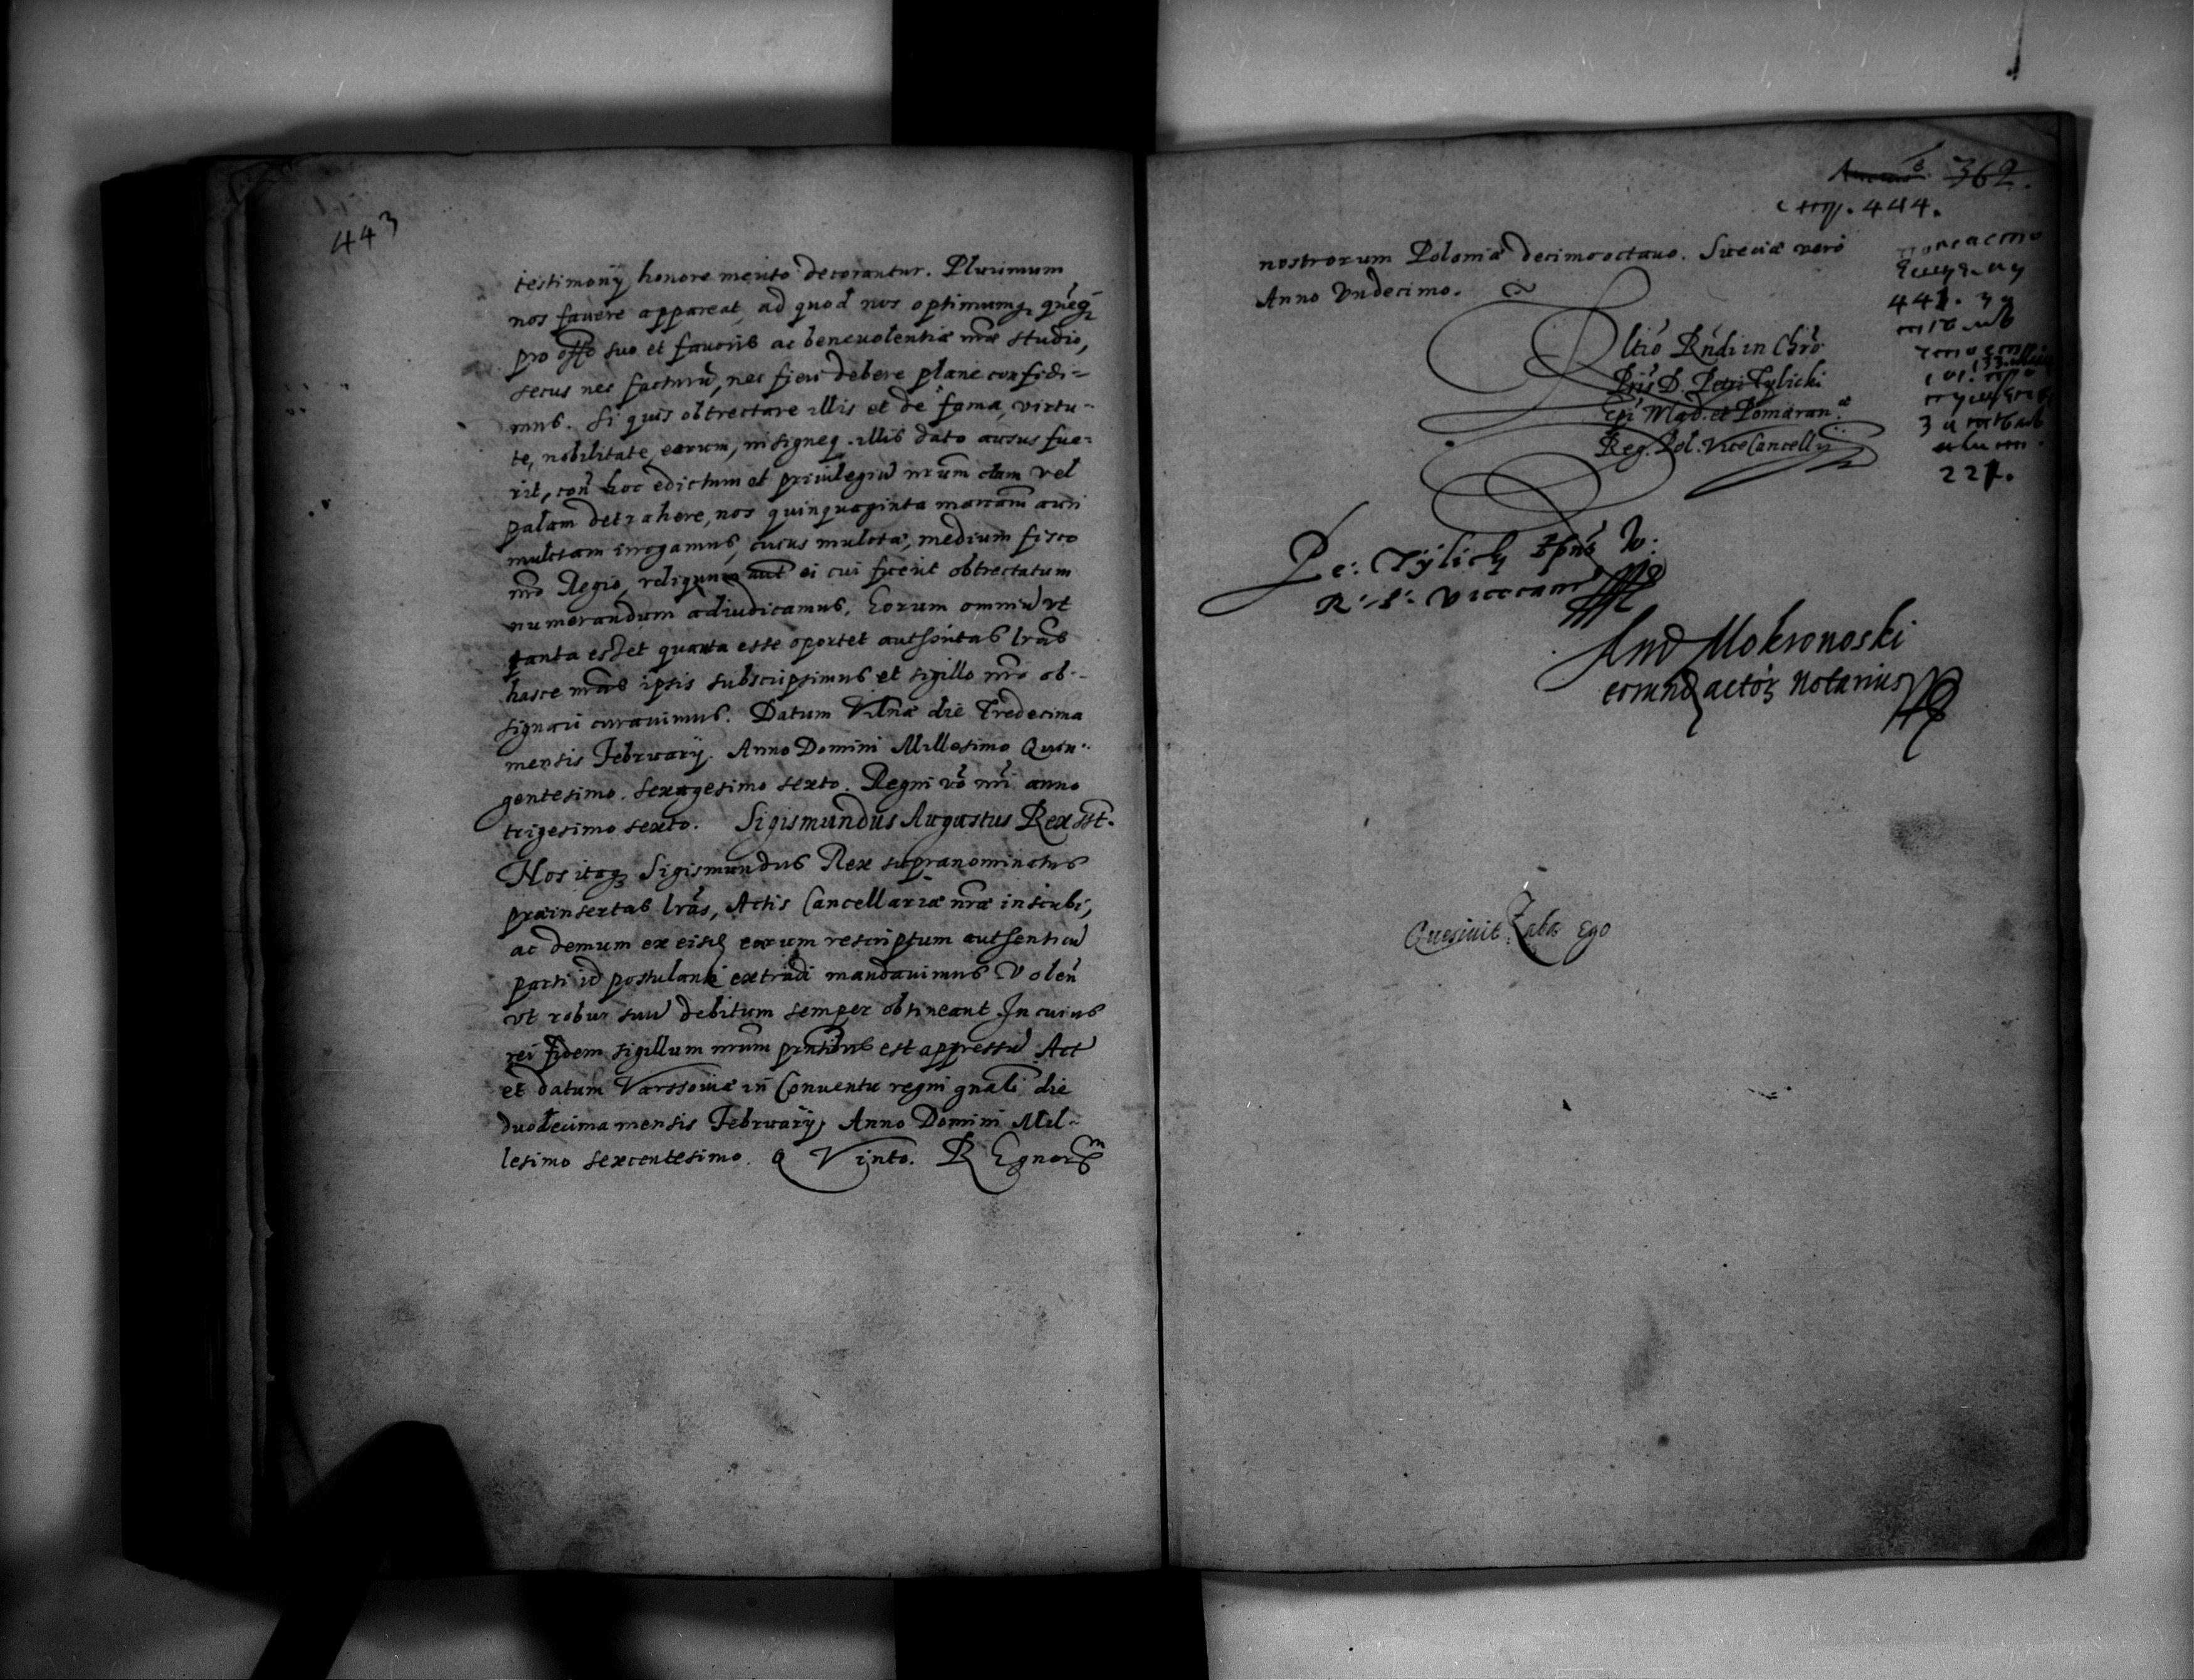 443
testimonÿ honore merito decorantur. Plurimum
nos favere appareat, ad quod nos optimumq̨ quēq̨
pro offō suo et favoris ac benevolentiæ nræ studio,
secus nec facturū, nec fieri debere plane confidi=
mus. Si quis obtrectare illis et de fama, virtu-
te, nobilitate earum, insigneq̨ illis dato ausus fue=
rit, con̄ hoc edictum et priuilegiū nrum clam vel
palam detrahere, nos quinquaginta marcarū auri
mulctam irrogamus, cuius mulctæ, medium fisco
nro Regio, reliquum aut ei cui fuerit obtrectatum
numerandum adiudicamus. Eorum omniū vt
tanta esset quanta esse oportet authoritas lras
hasce nras ipsis subscripsimus et sigillo nro ob-
signari curauimus. Datum Vilnæ die Tredecima
mensis Februarÿ. Anno Domini Millesimo Quin-
gentesimo. sexagesimo sexto. Regni vō nri anno
trigesimo sexto. Sigismundus Augustus Rex sst.
Nos itaq̨ Sigismundus Rex supranominatus
præinsertas lras, Actis Cancellariæ nræ inscribi,
ac demum ex eisd̨ earum rescriptum authenticū
parti id postulanti extradi mandauimus Volen̄
vt robur suū debitum semper obtineant. In cuius
rei fidem sigillum nrum prntibus est appressū Act
et datum Varssouiæ in Conuentu regni gnali die
duodecima mensis Februarÿ, Anno Domini Mil-
lesimo sexcentesimo. QVinto. REgnorᵐ
362.
444.
nostrorum Poloniæ decimooctauo. Sueciæ verò
Anno Vndecimo.
Rltiō Rndi in Chrō
Pris D. Petri Tylicki
Epi Wlad. et Pomeran:æ
Reg. Pol. ViceCancellÿ
441.
221.
Pe: Tÿlicki Epūs W:
R: P: Vicecan
And Mokronoski
eorund̨ actor̨ Notarius
Quesiuit Zaba Ego